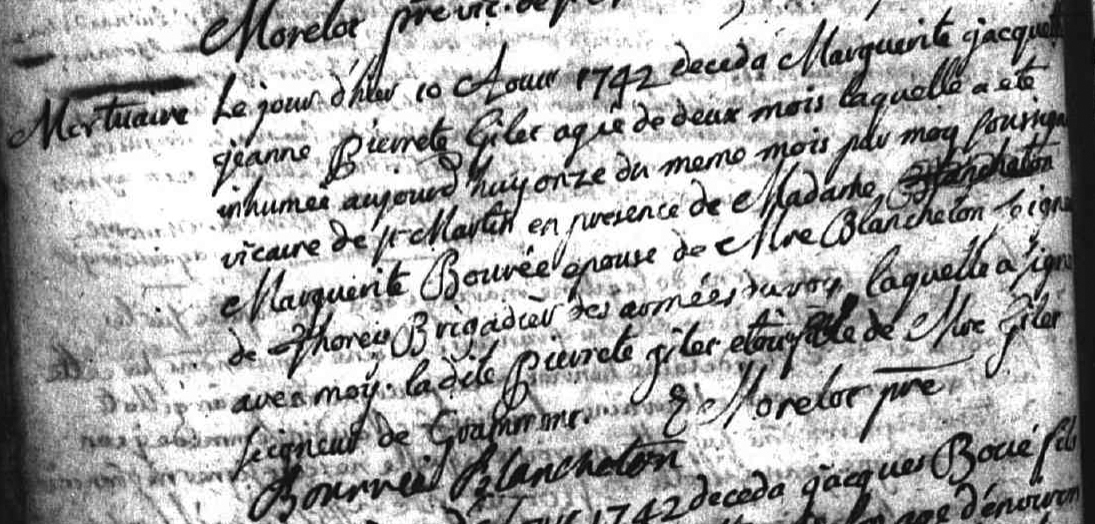 Morelot pre vic.
Mortuaire Le jour d'hier 10 Aoust 1742 deceda Marguerite jacquette
jeanne Pierrete Giles agée de deux mois laquelle a eté
inhumée aujourd'huy onze du meme mois par moy soussigné
vicaire de st Martin en presence de Madame Blancheton
Marguerite Bouvée epouse de Mre Blancheton seigne
de Thorey Brigadier des armées du roy laquelle a signé
avec moy. ladite Pierrete giles etoit fille de Mre Giles
seigneur de Morelot pre
Blancheton
1742 deceda jacques Boué fils
agé d'environ